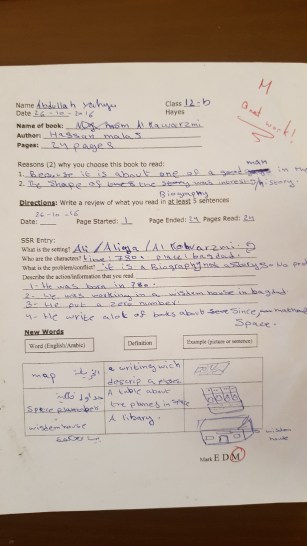 M
Good work!
Name Abdullah Class 12-b
Date 26-10-2016 Hayes
Name of book: Al Kawarzmi
Author: Hassan malas
Pages: 24 pages
Reasons (2) why you choose this book to read:
1. Because it is about one of a man in
2. The shape of the story was story.
Biography
Directions: Write a review of what you read in at least 5 sentences
26-10-16
Date: Page Started: 1 Page Ended: 24 Pages Read: 24
SSR Entry:
What is the setting?
Who are the characters? time: 780 place: bagdad.
What is the problem/conflict? it is a Biography not a story
Describe the action/information that you read
1- He was born in 780.
2- He was working in a wisdom house in bagdad.
3- He put a zero number.
4- He write alot of books about
Space.
New Words
Word (English/Arabic) Definition Example (picture or sentence)
map a writing wich
descrip a
A table about
the planets in space
wisdom house A library.
wisdom
house
Mark E D M